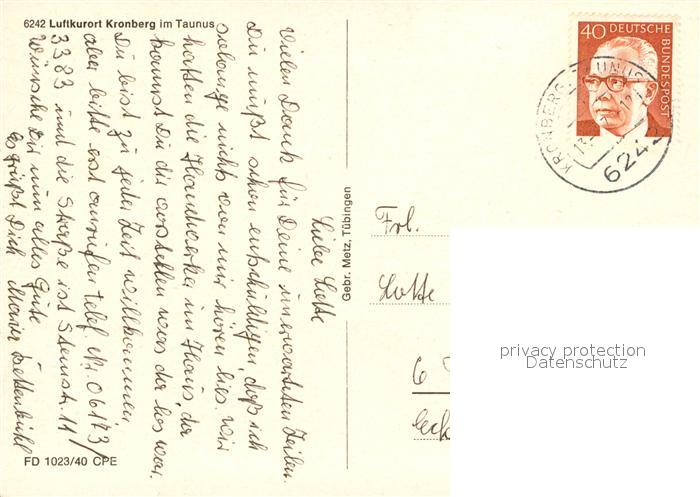 6242 Luftkurort Kronberg im Taunus
Liebe Lotte
Vielen Dank für Deine unerwarteten Zeilen.
Du mußt schon entschuldigen, daß ich
solange nichts von mir hören lies. Wir
hatten die Handwerker im Haus, da
kannst Du dir vorstellen was da los war.
Du bist zu jeder Zeit willkommen,
aber bitte erst anrufen Telef. Nr. 06173/
3383 und die Straße ist Steinstr. 11
Wünsche Dir nun alles Gute
Es grüßt Dich Maria
FD 1023/40 CPE
Gebr. Metz, Tübingen
40 DEUTSCHE
BUNDESPOST
KRONBERG TAUNUS
6242
Frl.
Lotte
6
privacy protection
Datenschutz